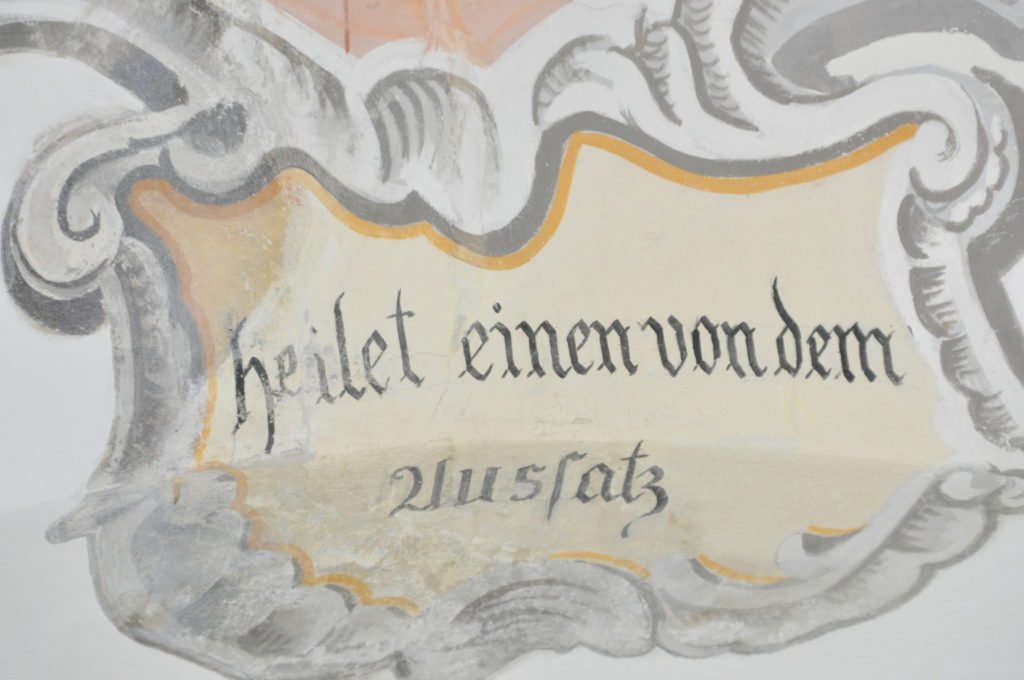 heilet einen von dem
Ausſatz